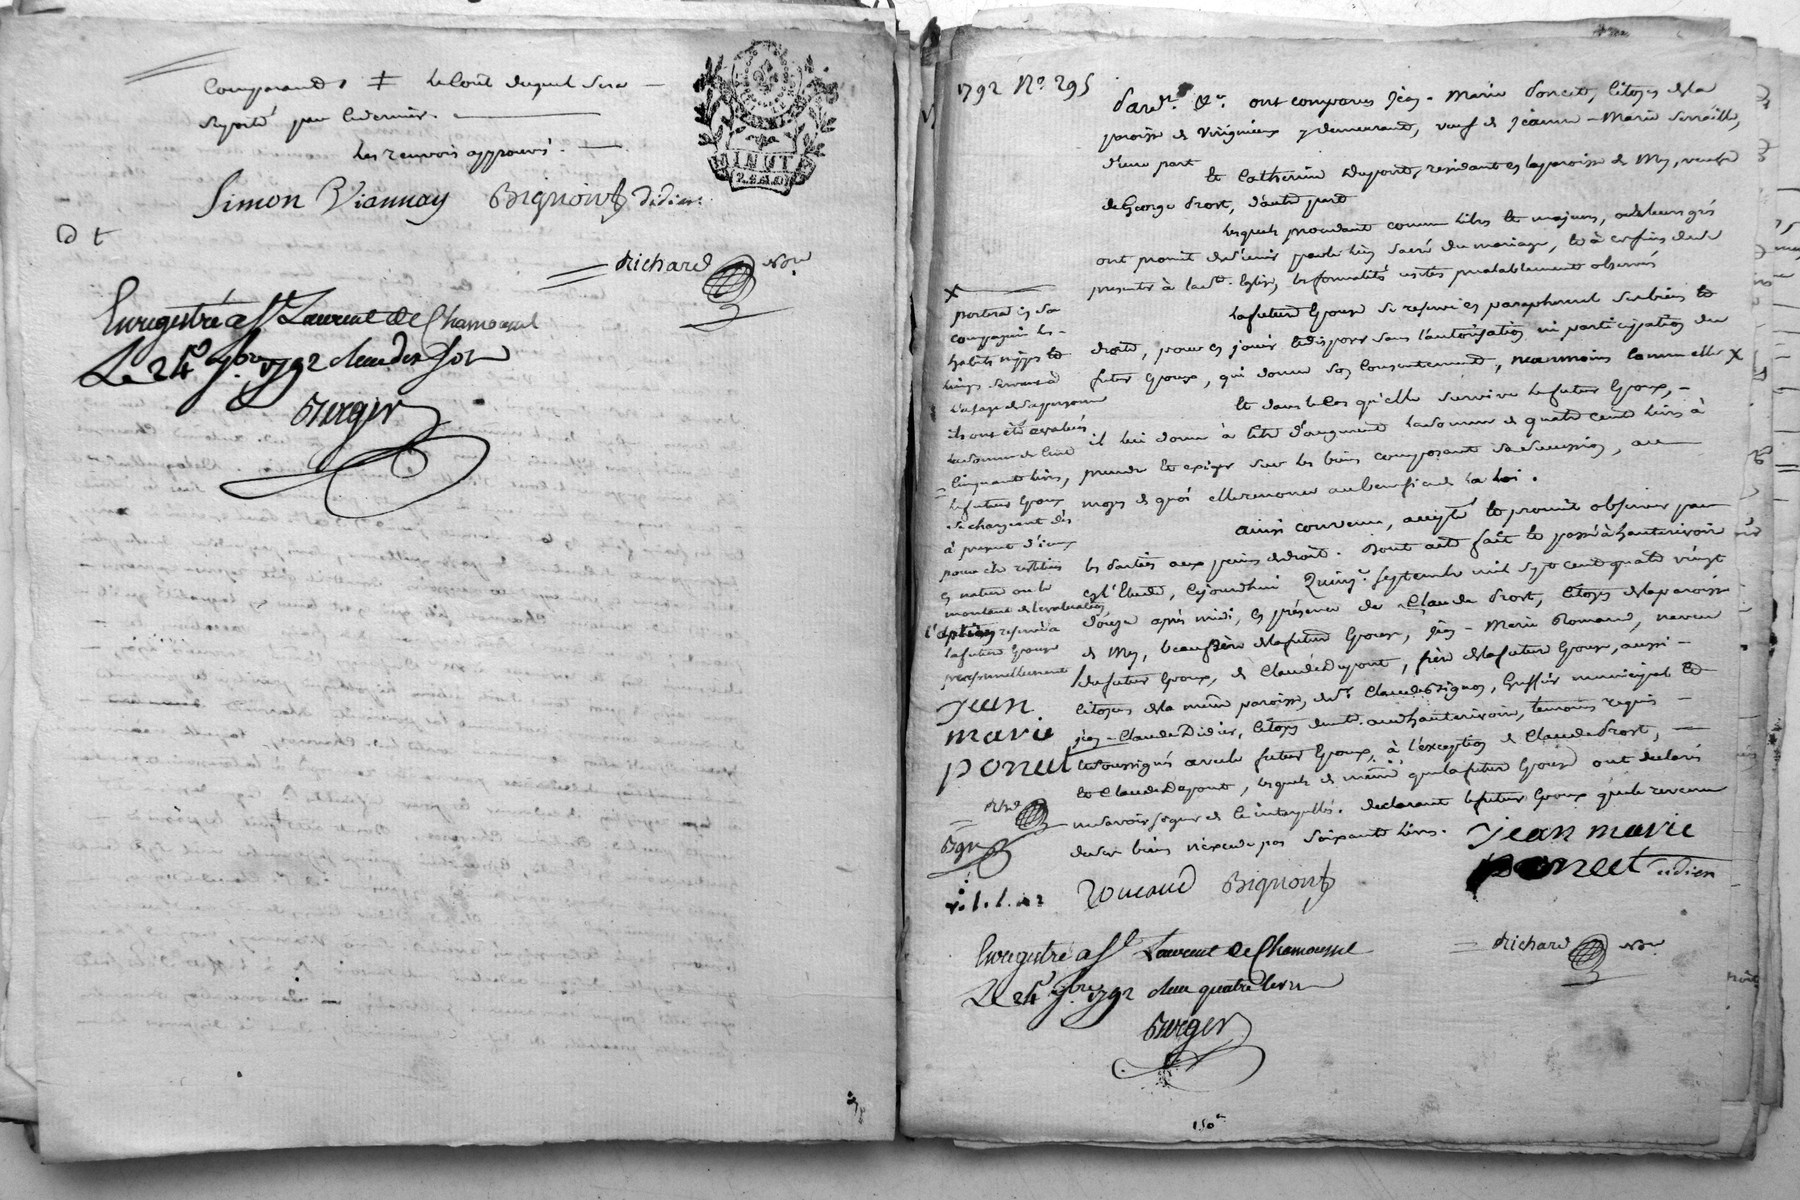 Comparands ǂ le Coût duquel sera
suporté par le dernier.
les renvois approuvés.
MINUTE
Simon Viannay Bignont Didier
Dt
Richard Nre
Enregistré a St Laurent de Chamousset
Le 24 7bre 1792 Sol
Berger
1792 No 295
Pardt &c. ont comparus jean-Marie Poncet, Citoyen de la
paroisse de Virigneux y demeurant, veuf de jeanne-Marie
d'une part
Et Catherine Dupont, résidante en la paroisse de Mey, veuve
de George Prost, d'autre part
lesquels procedant comme libres et majeurs, de leurs grés
ont promit de s'unir par le lien sacré du mariage, et à ces fins de se
presenter à la Ste Eglise, les formalités usitées prealablement observés
la future Epouse se reserve en paraphernal ses biens et
droits, pour en jouir et disposer sans l'autorisation ni participation du
futur Epoux, qui donne son Consentement, neanmoins comme elle X
Et dans le Cas qu'elle survive le futur Epoux,
il lui donne à titre d'augment la somme de quatre cents livres à
prendre et exiger sur les biens composant sa succession, au
moyen de quoi elle renonce au benefice de la loi.
Ainsi convenu, accepté et promit observer par
les Parties aux peines de droit. Dont acte fait et passé à hauterivoire
en l'Etude, cejourdhui quinze septembre mil sept cent quatre vingt
douze après midi, en présence de Claude Prost, Citoyen de la paroisse
de Mey, beaufrère de la future Epouse, jean-Marie Romand, neveu
du futur Epoux, de Claude Dupont, frère de la future Epouse, aussi
Citoyen de la même paroisse, de Sr Claude Bignon, Greffier municipal et
jean-Claude Didier, Citoyen dudt hauterivoire, temoins requis
et soussignés avec le futur Epoux, à l'exception de Claude Prost,
et Claude Dupont, lesquels de même que la future Epouse ont declarés
ne savoir signer de ce interpellés. declarant le futur Epoux que le revenu
de ses biens n'excede pas soixante livres.
X
portera en sa
compagnie les
habits nippes et
linges servant à
l'usage de sa personne
ils ont été évalués
la somme de Cent
Cinquante livres,
le futur Epoux
se chargeant dès
à present d'iceux
pour être restitués
en nature ou le
montant de l'evaluation,
l'option reservée à
la future Epouse
personnellement
jean
marie
poncet
Rhd
Bgn
jean marie
poncet Didier
Romand Bignont
Richard Nre
Enregistré a St Laurent de Chamousset
Le 24 7bre 1792 quatre livres
Berger